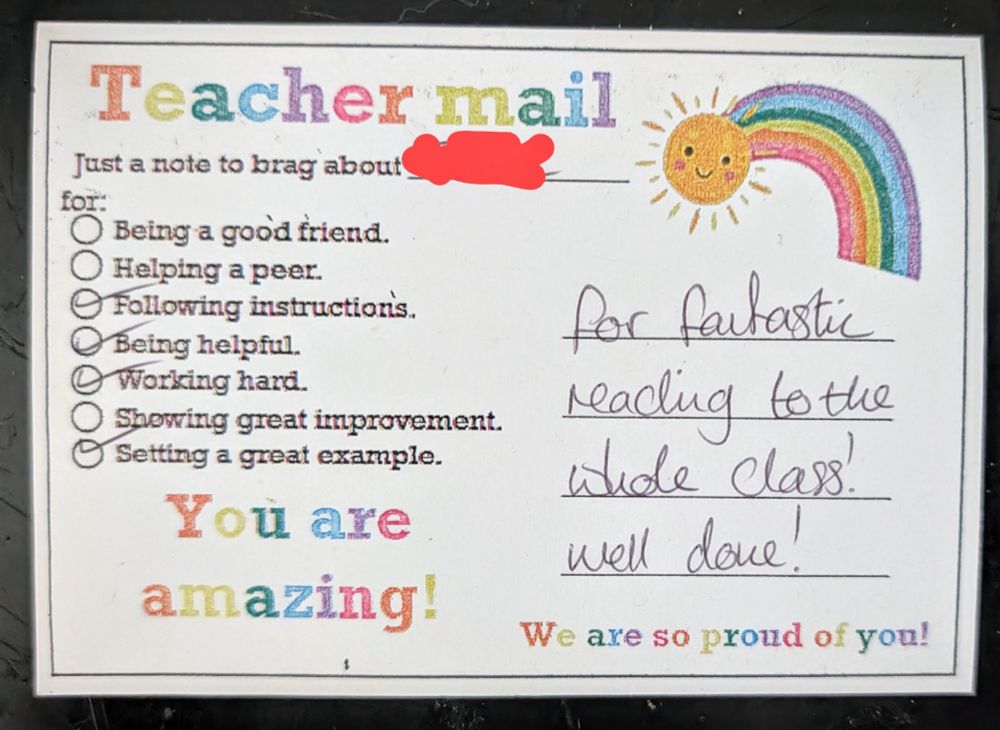 Teacher mail
Just a note to brag about
for:
Being a good friend.
Helping a peer.
Following instructions.
Being helpful.
Working hard.
Showing great improvement.
Setting a great example.
You are
amazing!
for fantastic
reading to the
whole class!
well done!
We are so proud of you!